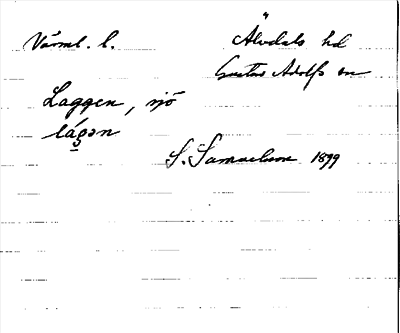 Värml. l. Älvdals hd
Gustav Adolfs sn
Laggen, sjö
lág̣ən
S. Samuelsson 1899